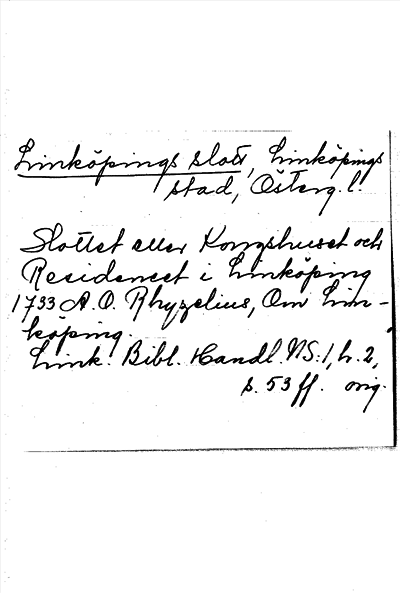 Linköpings slott, Linköpings
stad, Österg. l.
Slottet eller Kongshuset och
Residencet i Linköping
1733 A. O. Rhyzelius, Om Lin-
köping.
Link. Bibl. Handl. NS. 1, h. 2,
s. 53 ff. orig.